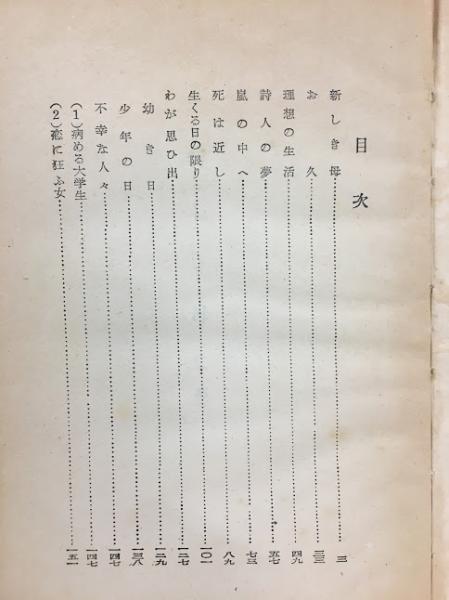 目次
新しき母……三
お久……三三
理想の生活……四九
詩人の夢……五七
嵐の中へ……七三
死は近し……八九
生くる日の限り……一〇一
わが思ひ出……一二七
幼き日……一二九
少年の日……一三八
不幸な人々……一四七
(1)病める大学生……一四七
(2)恋に狂ふ女……一五一